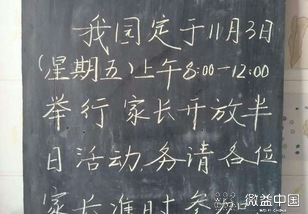 我园定于11月3日
(星期五)上午8:00-12:00
举行家长开放半
日活动,务请各位
家长准时参加
微益中国